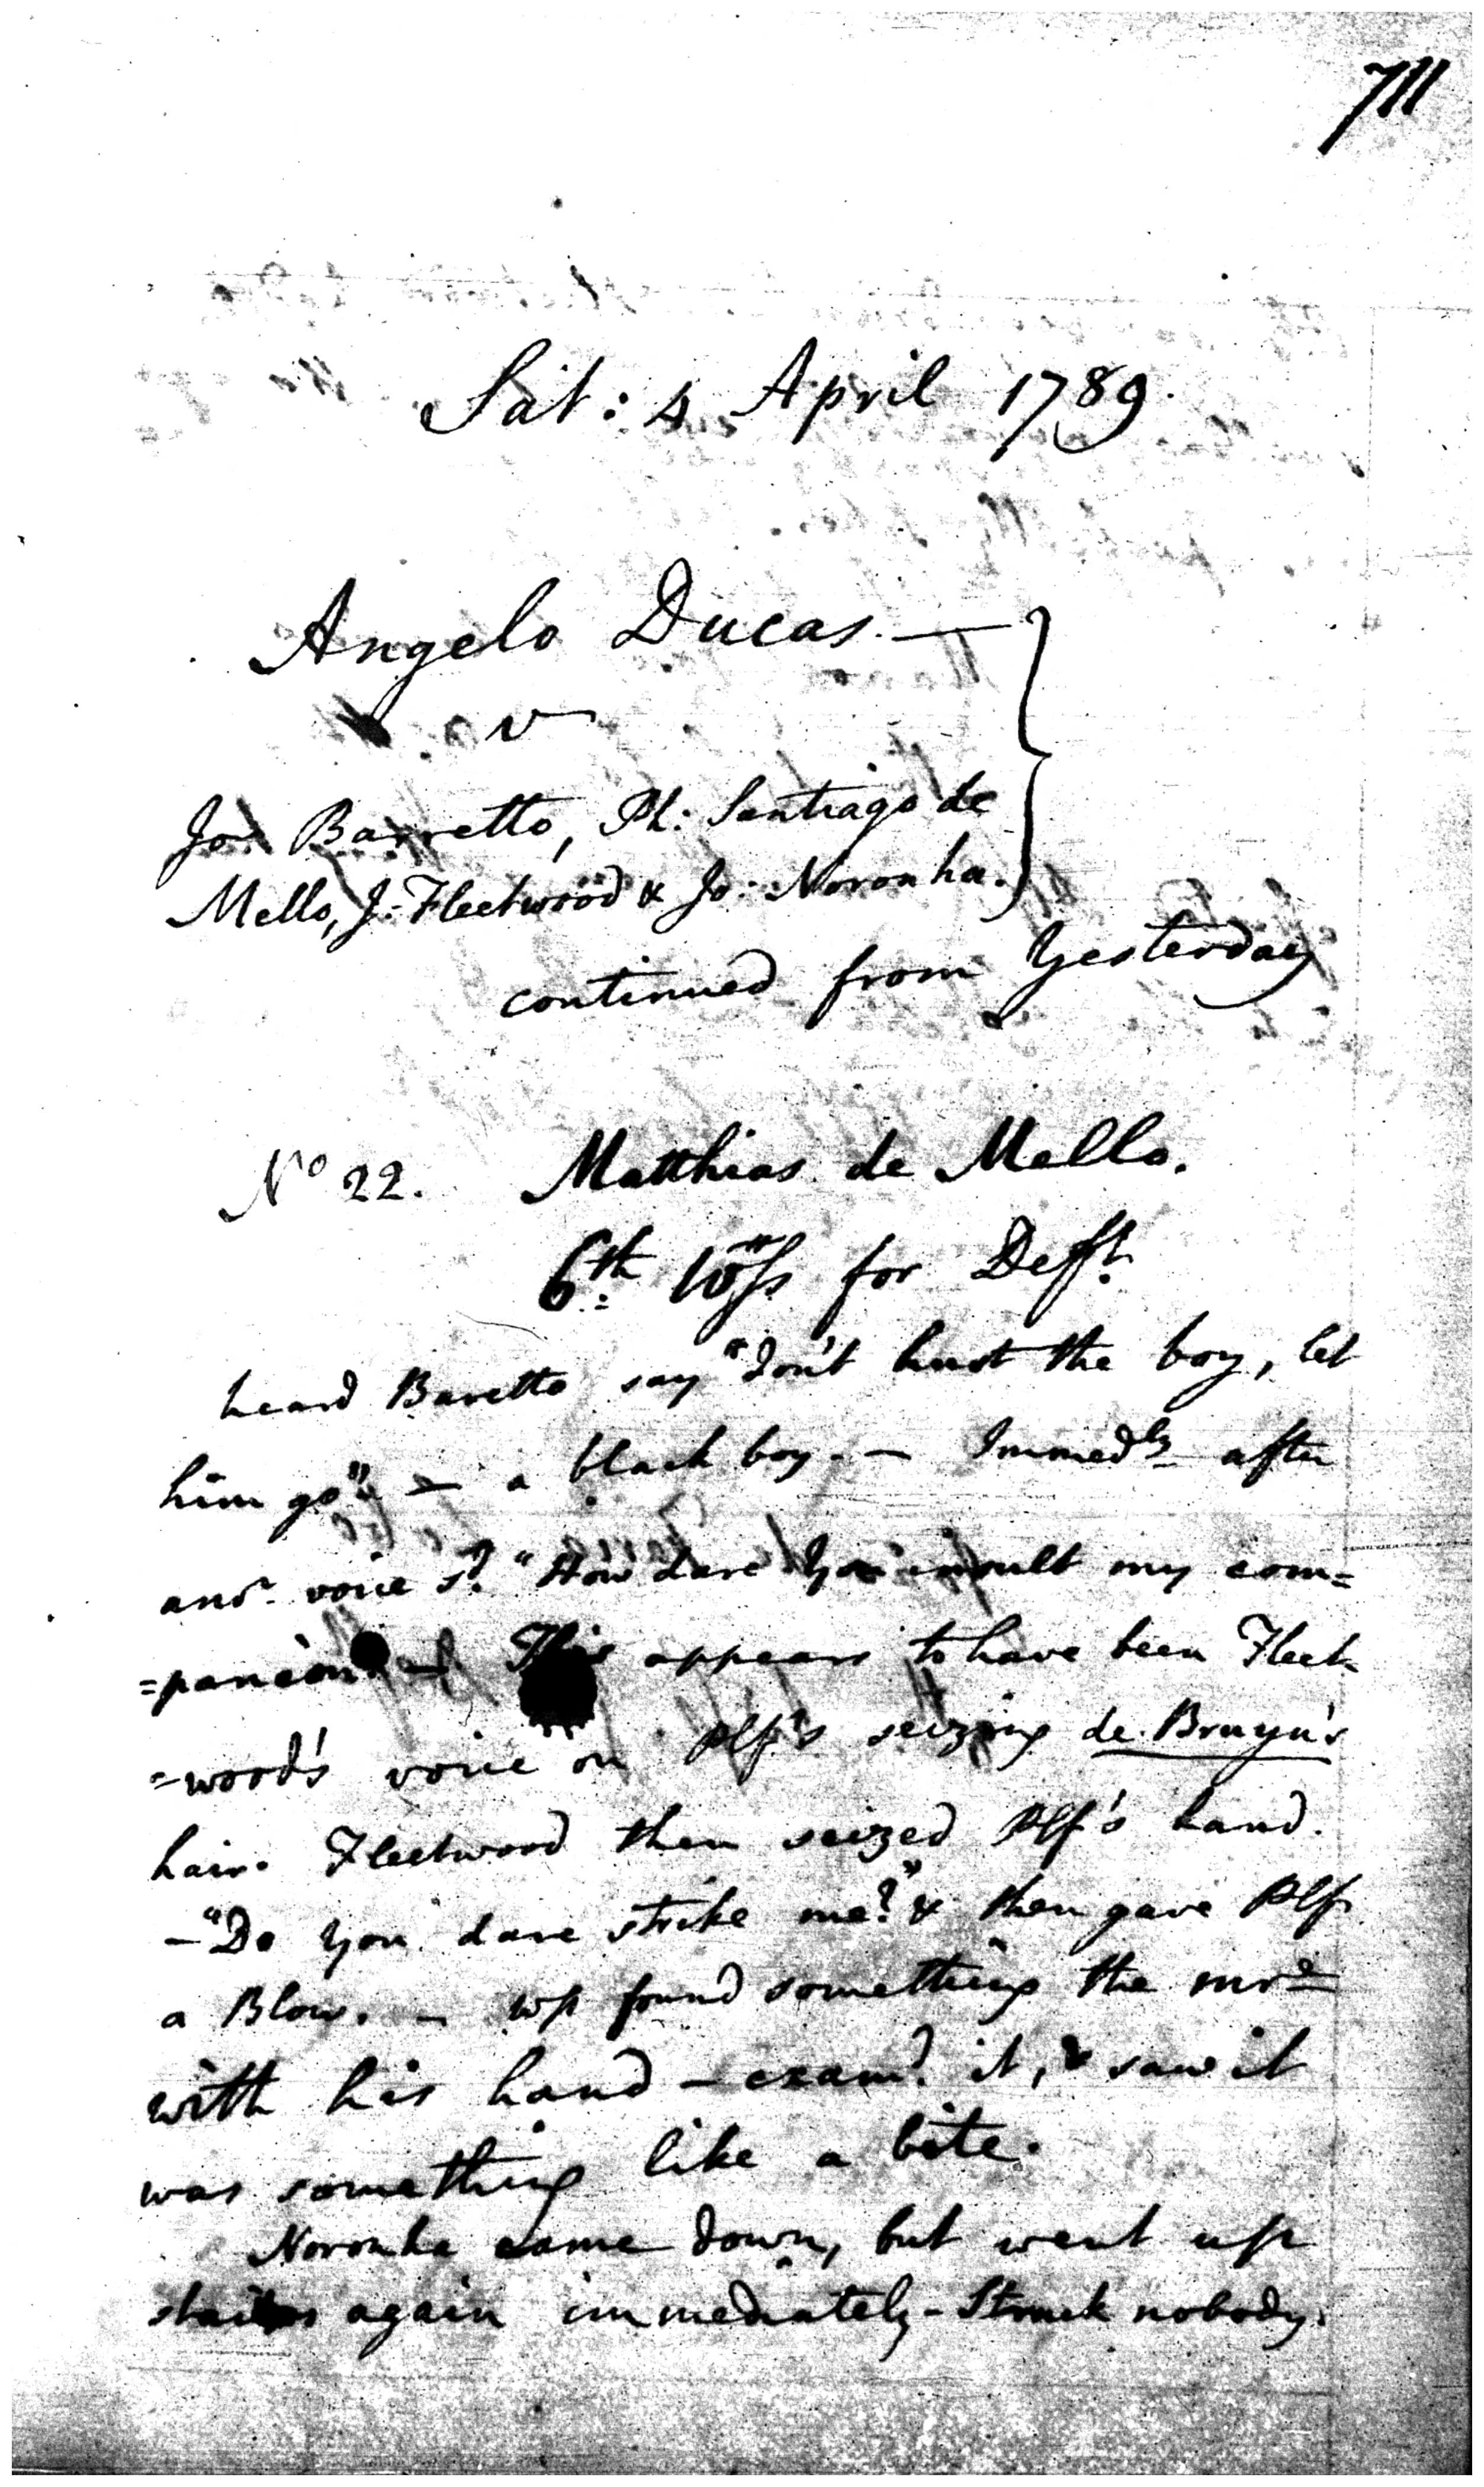 711
Sat: 4 April 1789.
Angelo Ducas. —
v
Jo: Barretto, Ph: Santiago de
Mello, J: Fleetwood & Jo: Noronha.
continued from Yesterday
No 22. Matthias de Mello.
6th: Wss for Deft.
heard Baretto say "don't hurt the boy, let
him go" — a black boy. — Immedly after
anor voice sd. "How dare You insult my com=
=panion" — This appears to have been Fleet-
=wood's voice on Plf's seizing de Bruyn's
hair. Fleetwood then seized Plf's hand.
— "Do You dare strike me?" & then gave Plf
a Blow. — found something the
with his hand — examd. it, & saw it
was something like a bite.
Noronha came down, but went up
stairs again immediately - Struck nobody.